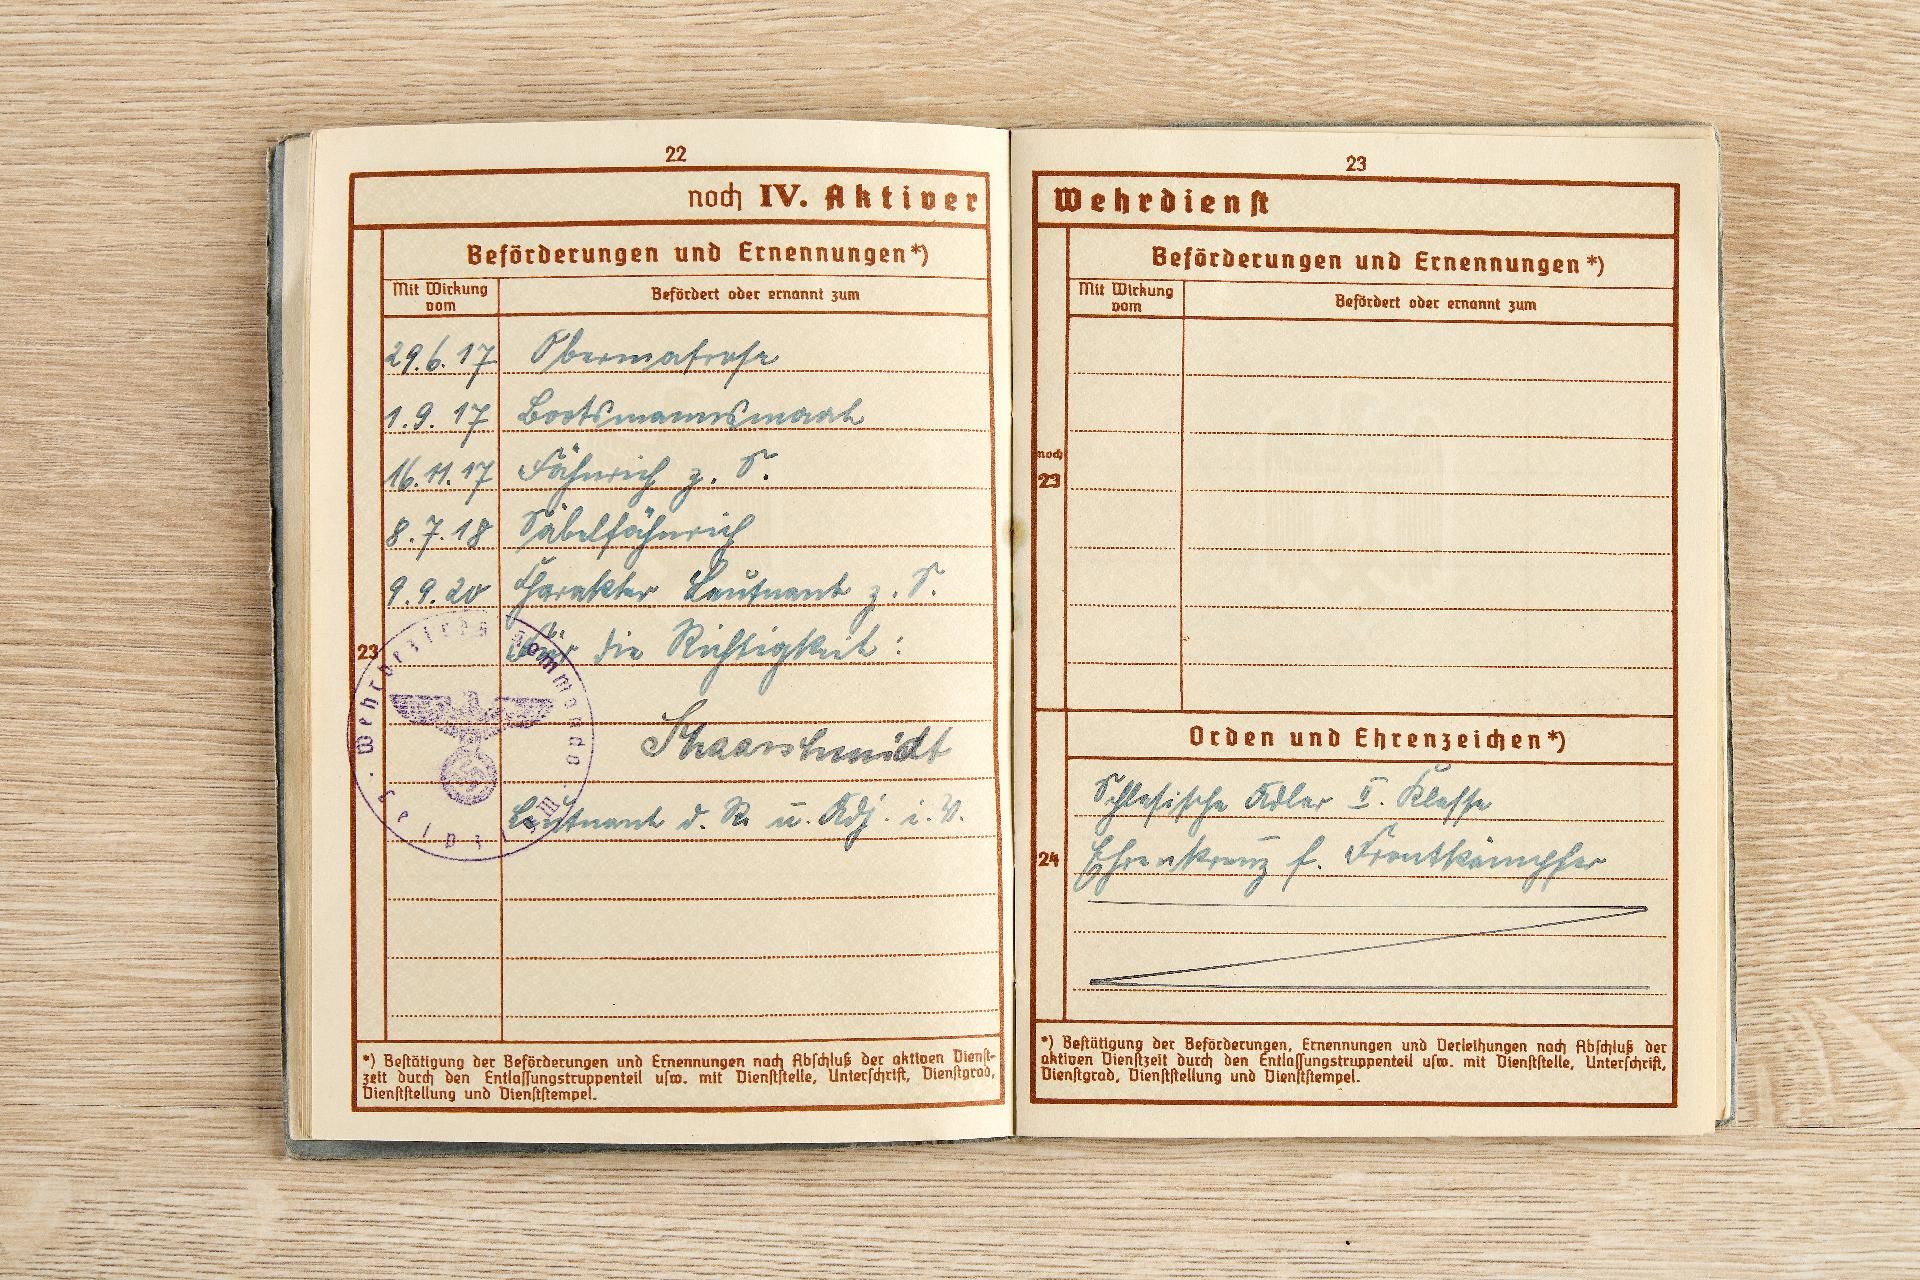 22
noch IV. Aktiver
Beförderungen und Ernennungen*)
Mit Wirkung vom
Befördert oder ernannt zum
29.6.17 Obermatrose
1.9.17 Bootsmannsmaat
16.11.17 Fähnrich z. S.
8.7.18 Säbelfähnrich
9.9.20 Charakter Leutnant z. S.
23
Für die Richtigkeit:
Wehrbezirkskommando
Leutnant d. R. u. Adj. i. V.
*) Bestätigung der Beförderungen und Ernennungen nach Abschluß der aktiven Dienst-
zeit durch den Entlassungstruppenteil usw. mit Dienststelle, Unterschrift, Dienstgrad,
Dienststellung und Dienststempel.
23
Wehrdienst
Beförderungen und Ernennungen*)
Mit Wirkung vom
Befördert oder ernannt zum
noch
23
Orden und Ehrenzeichen*)
Schlesische Adler II. Klasse
24
Ehrenkreuz f. Frontkämpfer
*) Bestätigung der Beförderungen, Ernennungen und Verleihungen nach Abschluß der
aktiven Dienstzeit durch den Entlassungstruppenteil usw. mit Dienststelle, Unterschrift,
Dienstgrad, Dienststellung und Dienststempel.